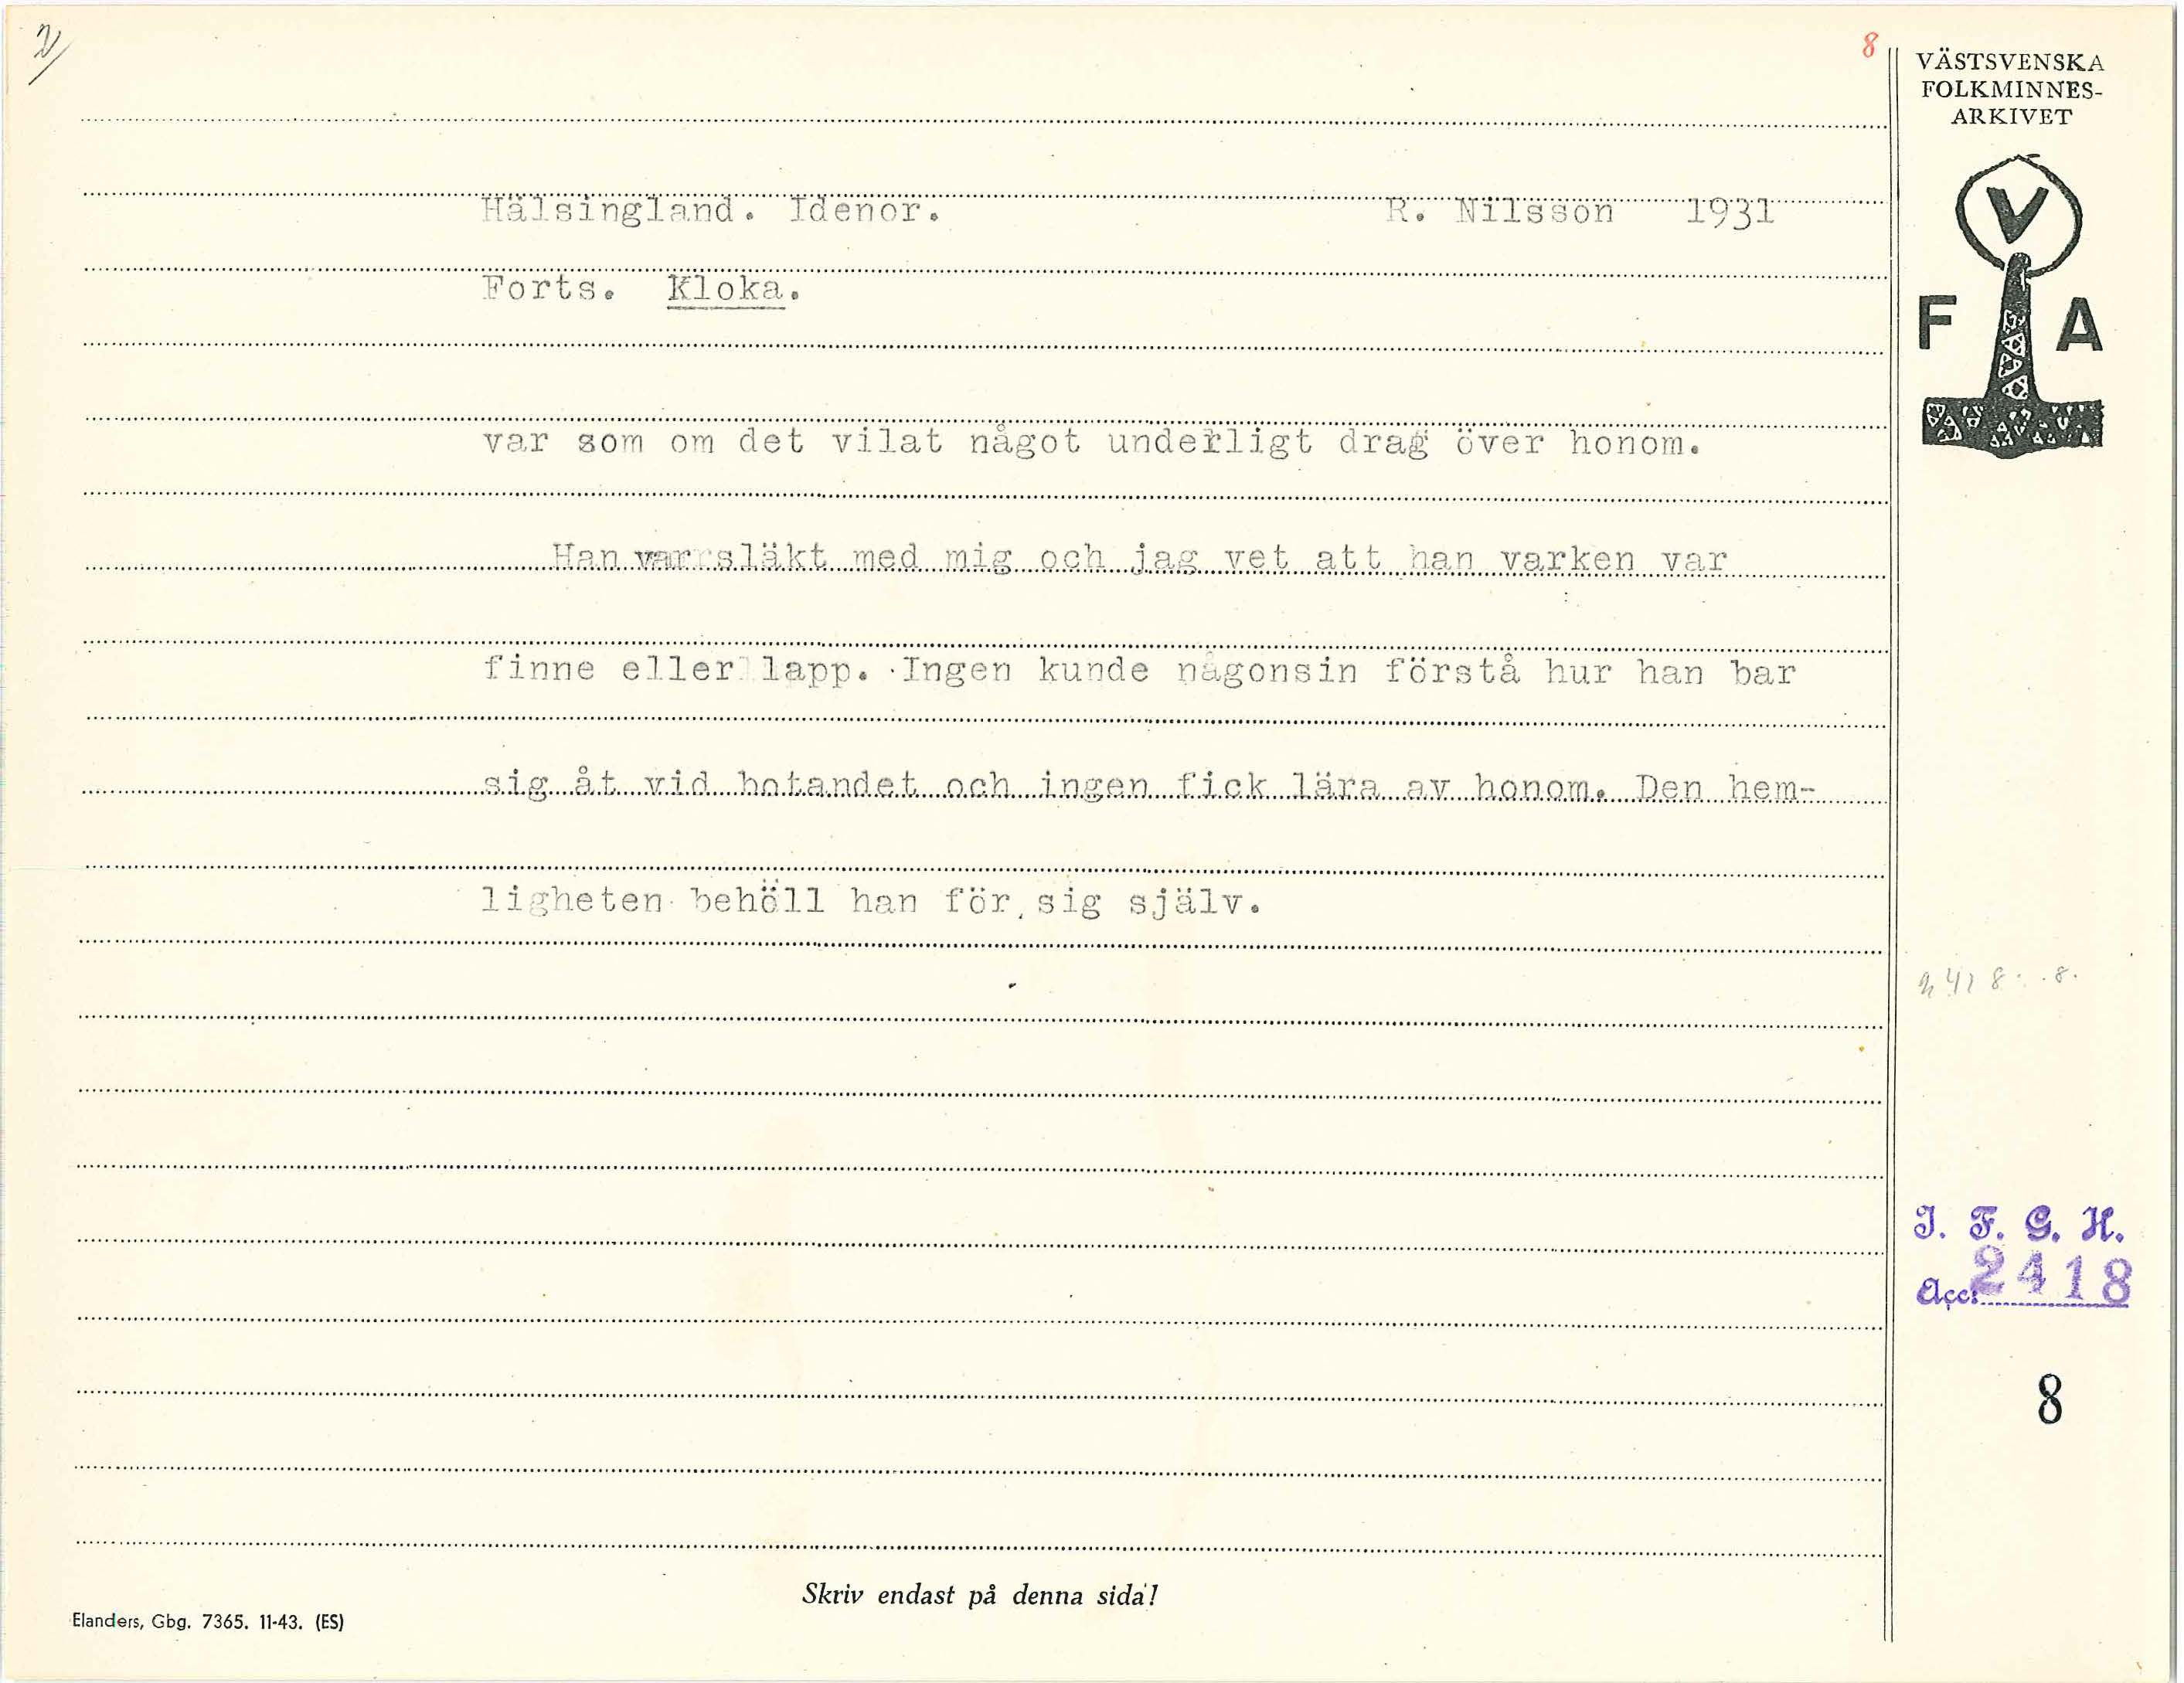 2/
8
VÄSTSVENSKA
FOLKMINNES-
ARKIVET
V
F A
Hälsingland. Idenor. R. Nilsson 1931
Forts. Kloka.
var som om det vilat något underligt drag över honom.
Han var släkt med mig och jag vet att han varken var
finne eller lapp. Ingen kunde någonsin förstå hur han bar
sig åt vid botandet och ingen fick lära av honom. Den hem-
ligheten behöll han för sig själv.
2418: 8.
I. F. G. H.
Acc: 2418
8
Skriv endast på denna sida!
Elanders, Gbg. 7365. 11-43. (ES)